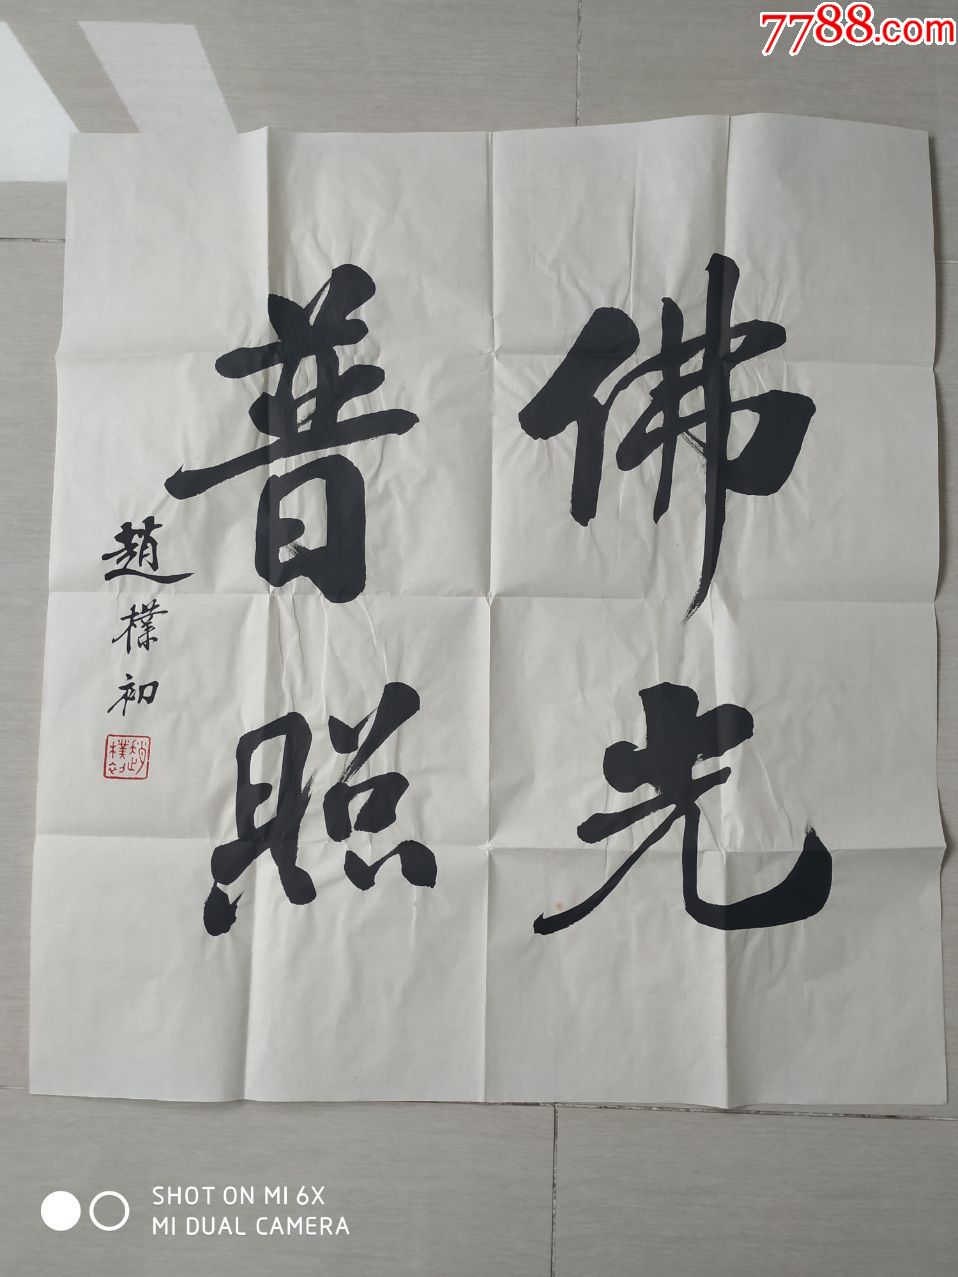 7788.com
佛光
普照
趙樸初
趙樸初
SHOT ON MI 6X
MI DUAL CAMERA